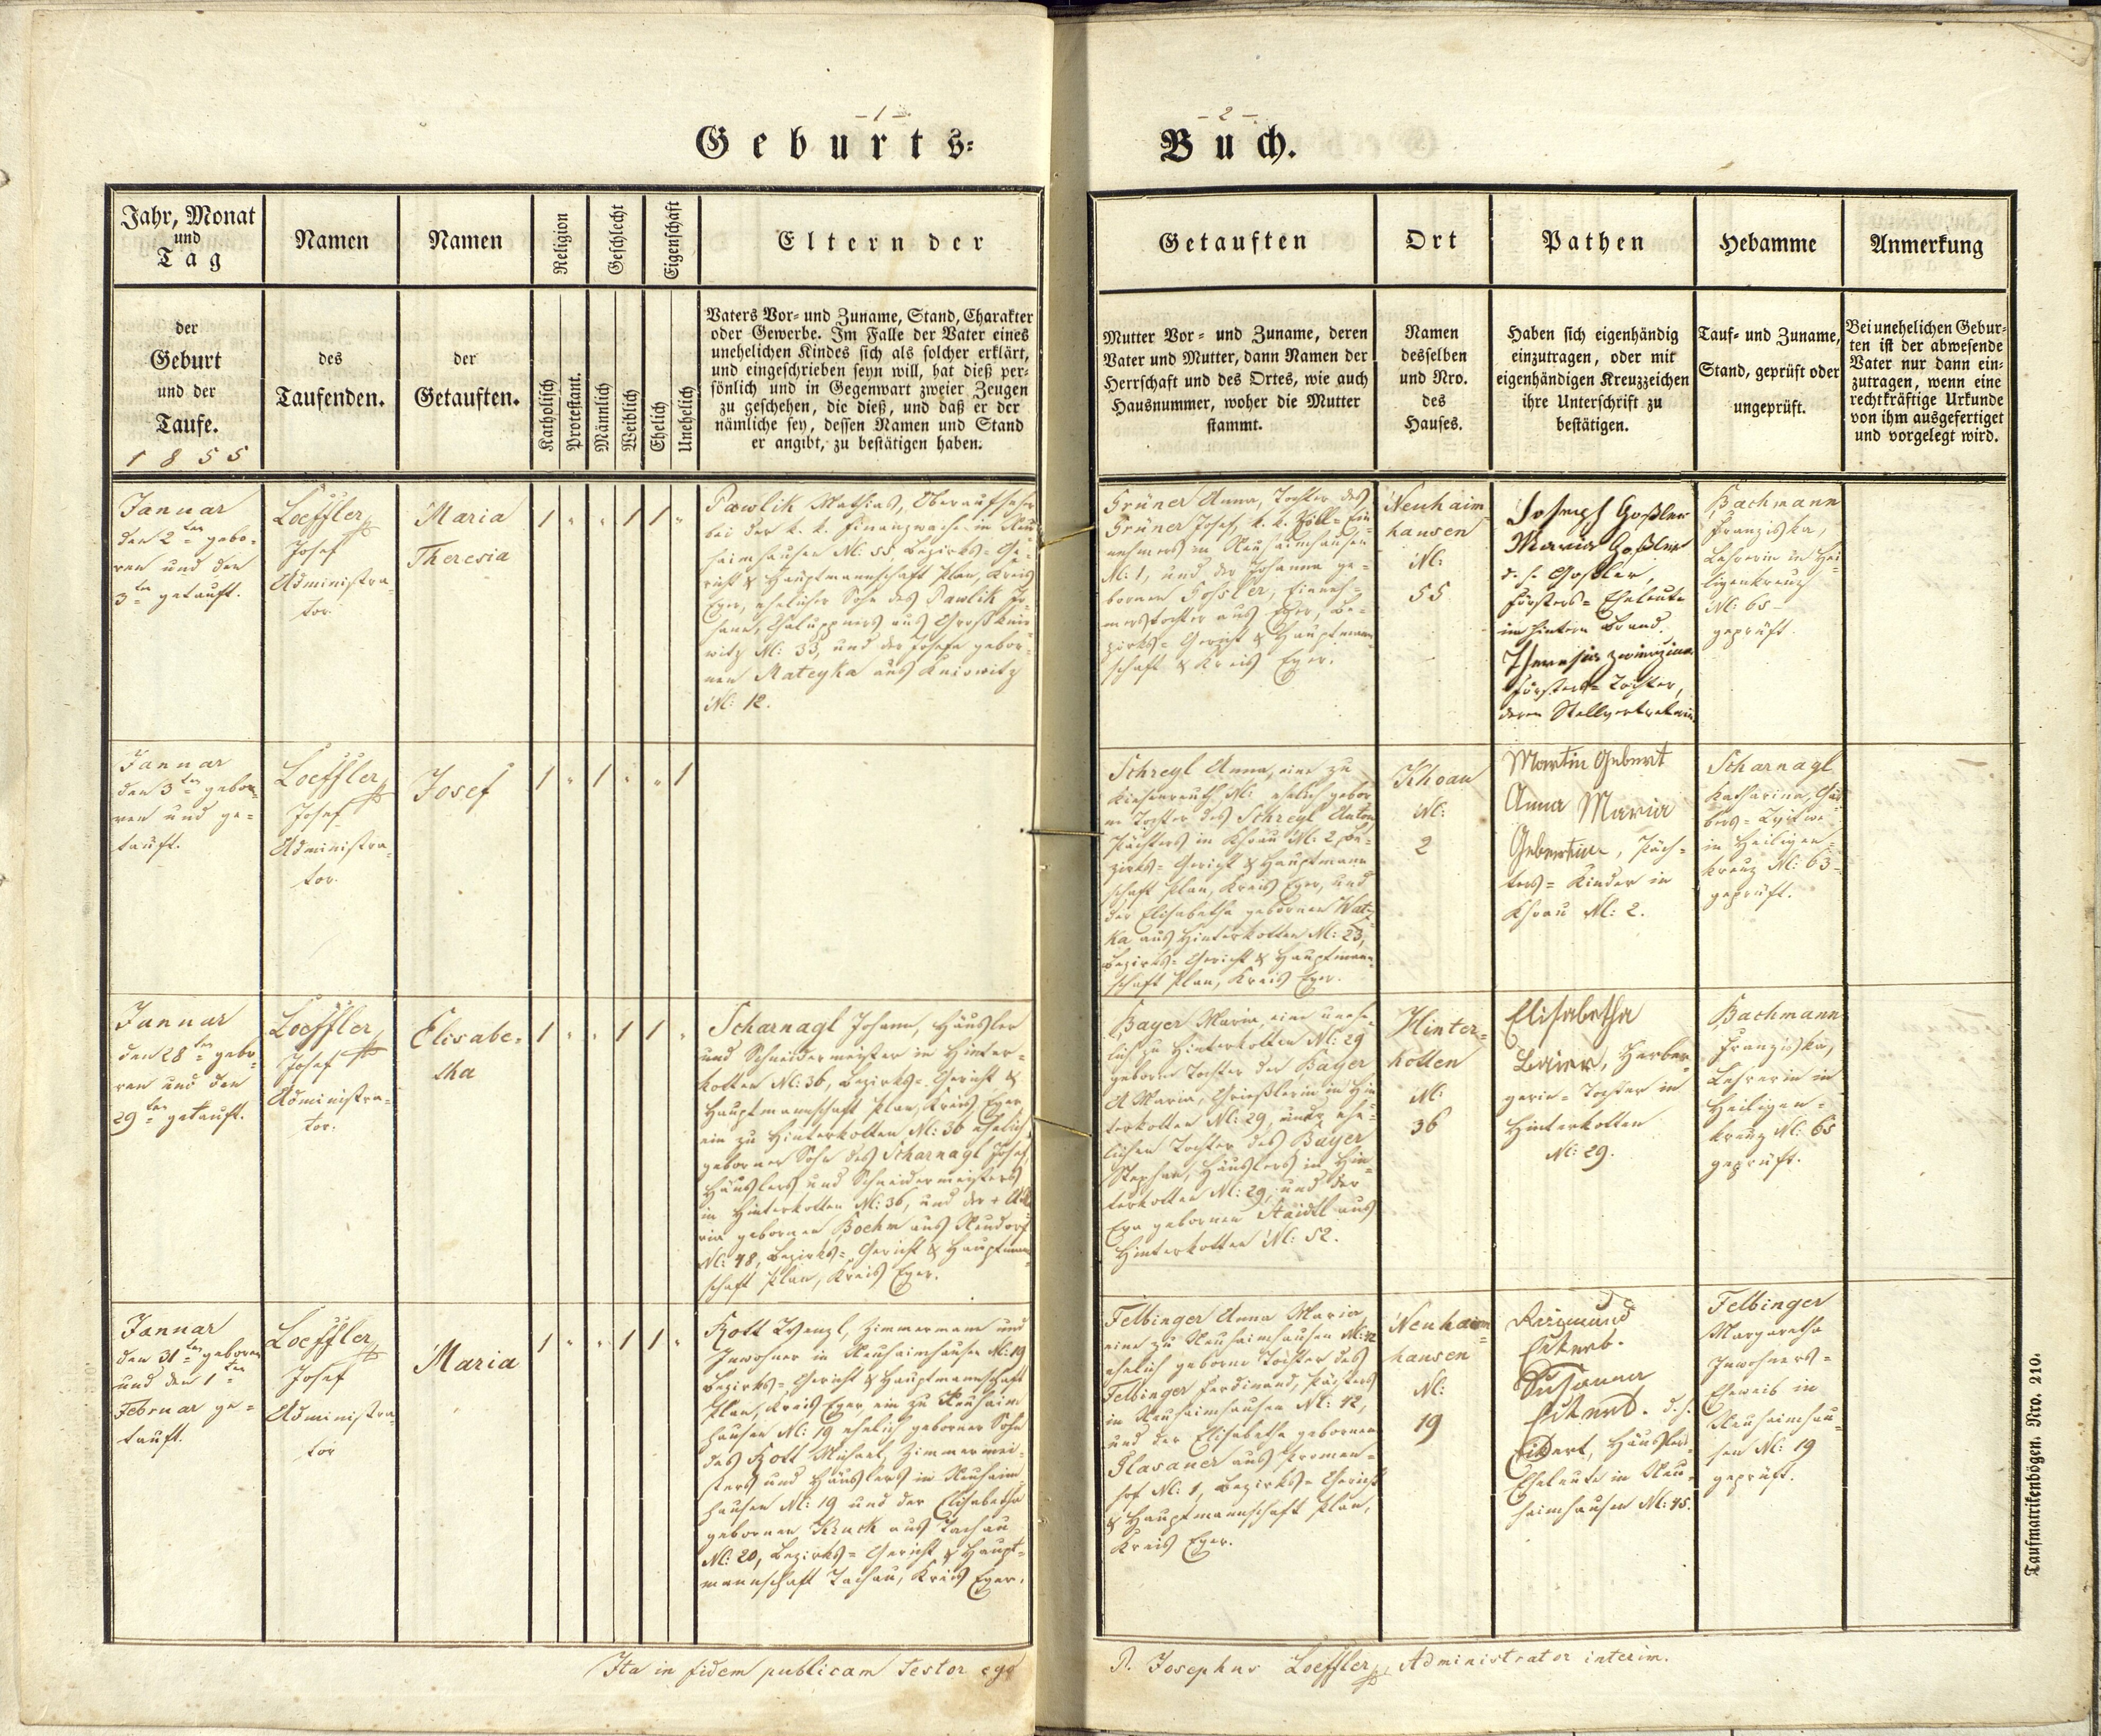 – 1 –
– 2 –
Geburts=
Buch.
Jahr, Monat
und
Tag
Namen
Namen
Religion
Geschlecht
Eigenschaft
Eltern der
der
Geburt
und der
Taufe.
1855
des
Taufenden.
der
Getauften.
Katholisch
Protestant.
Männlich
Weiblich
Ehelich
Unehelich
Vaters Vor- und Zuname, Stand, Charakter
oder Gewerbe. Im Falle der Vater eines
unehelichen Kindes sich als solcher erklärt,
und eingeschrieben seyn will, hat dieß per-
sönlich und in Gegenwart zweier Zeugen
zu geschehen, die dieß, und daß er der
nämliche sey, dessen Namen und Stand
er angibt, zu bestätigen haben.
Getauften
Ort
Pathen
Hebamme
Anmerkung
Mutter Vor- und Zuname, deren
Vater und Mutter, dann Namen der
Herrschaft und des Ortes, wie auch
Hausnummer, woher die Mutter
stammt.
Namen
desselben
und Nro.
des
Hauses.
Haben sich eigenhändig
einzutragen, oder mit
eigenhändigen Kreuzzeichen
ihre Unterschrift zu
bestätigen.
Tauf- und Zuname,
Stand, geprüft oder
ungeprüft.
Bei unehelichen Gebur-
ten ist der abwesende
Vater nur dann ein-
zutragen, wenn eine
rechtkräftige Urkunde
von ihm ausgefertiget
und vorgelegt wird.
Januar
den 2ten gebo-
ren und den
3ten getauft.
Loeffler
Josef
Administra-
tor.
Maria
Theresia
1 " " 1 1 "
Pawlik Mathias, Oberaufseher
bei der k. k. Finanzwache in Neu-
haimhausen N: 55, Bezirks-Ge-
richt & Hauptmannschaft Plan, Kreis
Eger, ehelicher Sohn des Pawlik Jo-
hann, Chaluppners aus
N: 33, und der Josefa gebor-
nen Mateyka aus
N: 12.
Grüner Anna, Tochter des
Grüner Josef, k. k. Zoll-Ein-
nehmers in Neuhaimhausen
N: 1, und der Johanna ge-
bornen Gossler, Einneh-
merstochter aus Eger, Be-
zirks-Gericht & Hauptmann-
schaft & Kreis Eger.
Neuhaim-
hausen
N:
55
Joseph Goßler
Maria Goßler
d. h. Goßler,
Försters-Eheleute
im hintern Brand.
Theresia
Försters-Tochter,
deren Stellvertreterin
Bachmann
Franziska,
Lehrerin in Hei-
ligenkreuz
N: 65
geprüft.
Januar
den 3ten gebo-
ren und ge-
tauft.
Loeffler
Josef
Administra-
tor.
Josef
1 " 1 " " 1
Schreyl Anna, eine zu
N: ehelich gebor-
ne Tochter des Schreyl Anton
Pächters in Khoau N: 2, Be-
zirks-Gericht & Hauptmann-
schaft Plan, Kreis Eger, und
der Elisabetha gebornen Wat-
ka aus Hinterkotten N: 23,
Bezirks-Gericht & Hauptmann-
schaft Plan, Kreis Eger.
Khoau
N:
2
Martin Gebert
Anna Maria
Gebertin, Päch-
ters-Kinder in
Khoau N: 2.
Scharnagl
Katharina,
in Heiligen-
kreuz N: 63
geprüft.
Januar
den 28ten gebo-
ren und den
29ten getauft.
Loeffler
Josef
Administra-
tor.
Elisabe-
tha
1 " " 1 1 "
Scharnagl Johann, Häusler
und Schneidermeister in Hinter-
kotten N: 36, Bezirks-Gericht &
Hauptmannschaft Plan, Kreis Eger
ein zu Hinterkotten N: 36 ehelich
geborner Sohn des Scharnagl Josef,
Häuslers und Schneidermeisters
in Hinterkotten N: 36, und der + Ma-
ria gebornen Boehm aus Neudorf
N: 48, Bezirks-Gericht & Hauptmann-
schaft Plan, Kreis Eger.
Bayer Maria, eine unehe-
lich zu Hinterkotten N: 29
geborne Tochter der Bayer
A. Maria, in Hin-
terkotten N: 29, ehe-
lichen Tochter des Bayer
Stephan, Häuslers in Hin-
terkotten N: 29, und der
Eva gebornen Haidl aus
Hinterkotten N: 52.
Hinter-
kotten
N:
36
Elisabetha
Baier,
Tochter in
Hinterkotten
N: 29.
Bachmann
Franziska,
Lehrerin in
Heiligen-
kreuz N: 65
geprüft.
Januar
den 31ten geboren
und den 1ten
Februar ge-
tauft.
Loeffler
Josef
Administra-
tor
Maria
1 " " 1 1 "
Kott Wenzl, Zimmermann und
Inwohner in Neuhaimhausen N: 19
Bezirks-Gericht & Hauptmannschaft
Plan, Kreis Eger, ein zu Neuhaim-
hausen N: 19 ehelich geborner Sohn
des Kott Michael, Zimmermei-
sters und Häuslers in Neuhaim-
hausen N: 19 und der Elisabetha
gebornen Kruck aus Tachau
N: 20, Bezirks-Gericht & Haupt-
mannschaft Tachau, Kreis Eger.
Felbinger Anna Maria
eine zu Neuhaimhausen N: 42
ehelich geborne Tochter des
Felbinger Ferdinand, Pächters
in Neuhaimhausen N: 42,
und der Elisabetha gebornen
Glasauer aus Promen-
hof N: 1, Bezirks-Gericht
& Hauptmannschaft Plan,
Kreis Eger.
Neuhaim-
hausen
N:
19
Susanna
d. h.
Häuslers-
Eheleute in Neu-
haimhausen N: 45.
Felbinger
Margaretha
Inwohners-
Eheweib in
Neuhaimhau-
sen N: 19
geprüft.
Ita in fidem publicam testor ego
P. Josephus Loeffler, Administrator interim.
Taufmatrikenbögen. Nro. 210.